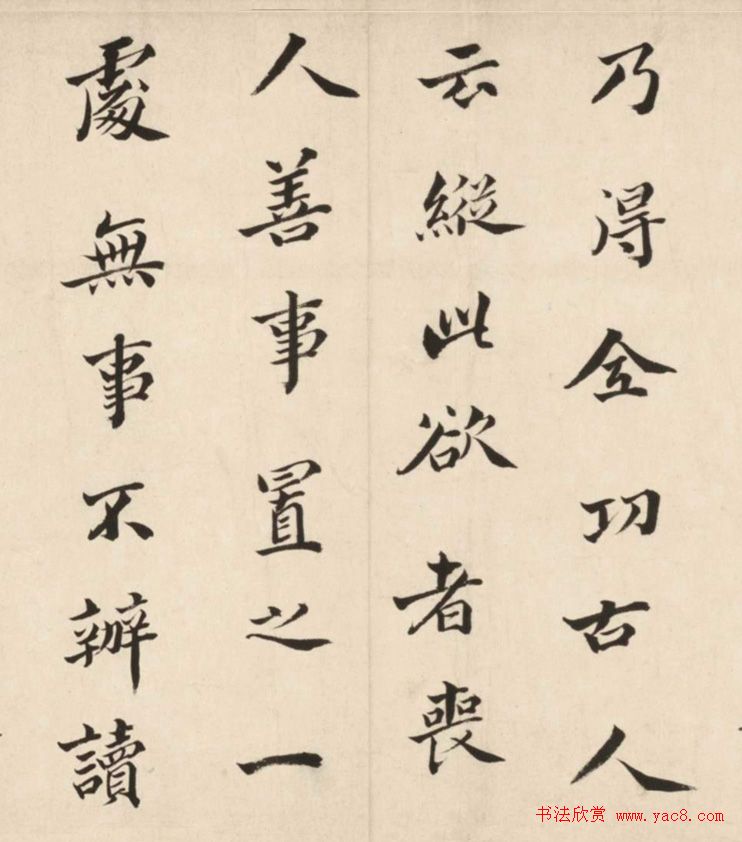 乃得全功古人
云縱此欲者喪
人善事置之一
處無事不辦讀
书法欣赏 www.yac8.com